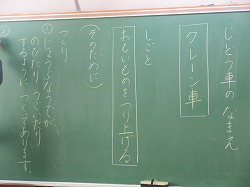 じどう車のなまえ
クレーン車
しごと
おもいものをつり上げる
(そのために)
つくり
①じょうぶなうでが、
のびたり うごいたり
するように つくってあります。
②